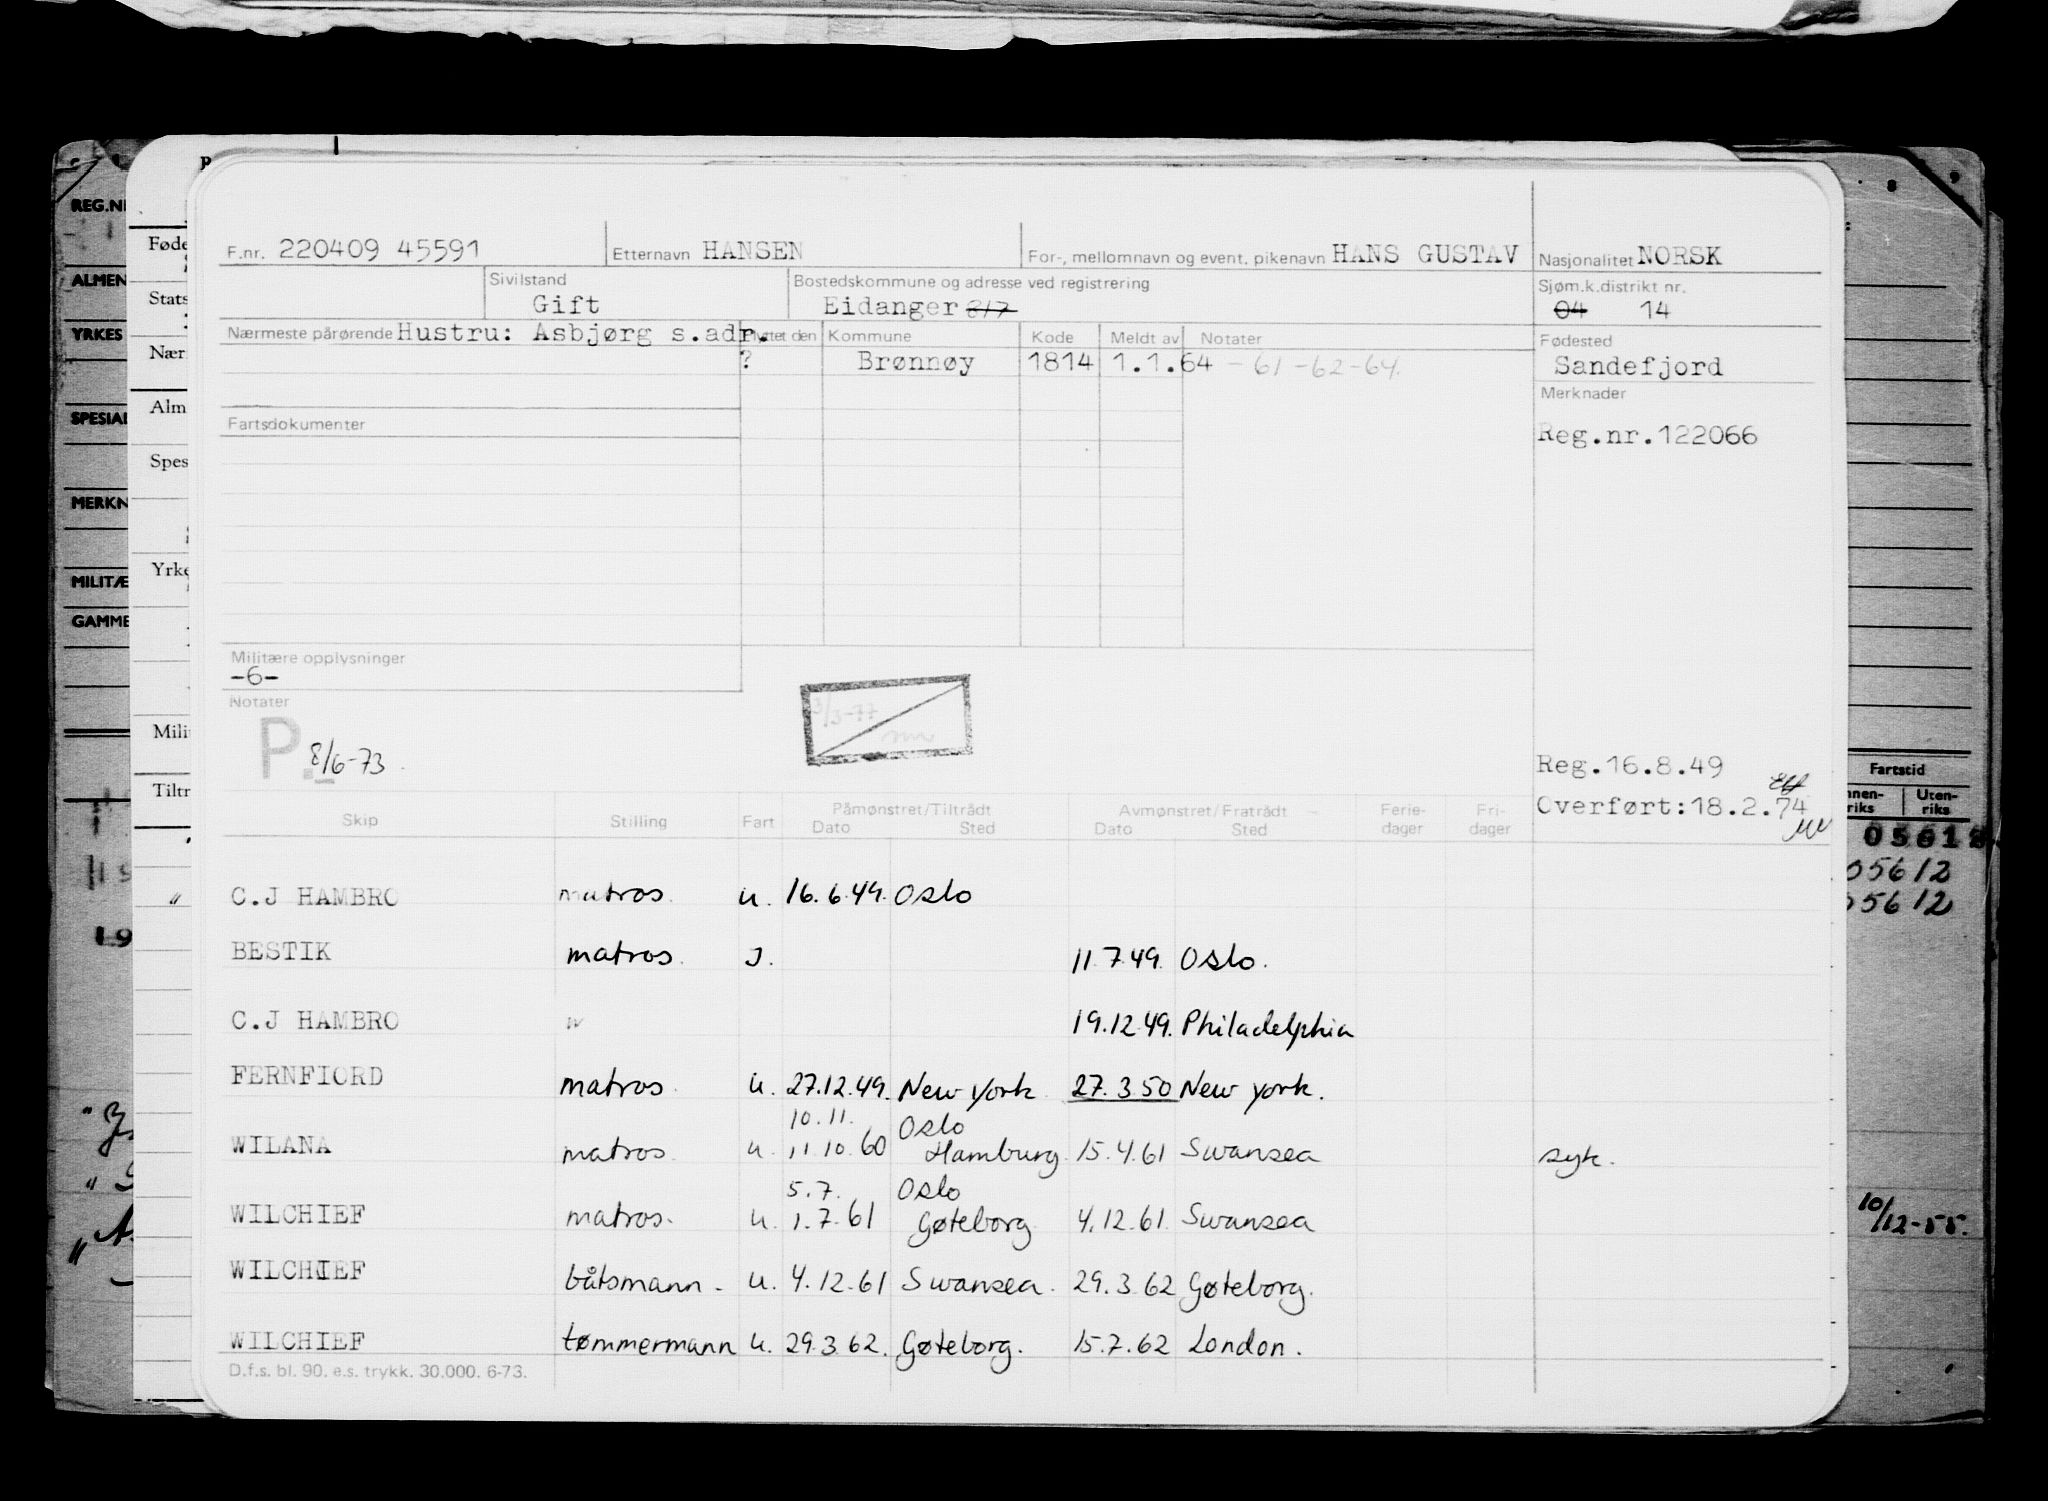 F.nr. 220409 45591 Etternavn HANSEN For-, mellomnavn og event. pikenavn HANS GUSTAV Nasjonalitet NORSK
Sivilstand Bostedskommune og adresse ved registrering Sjøm.k.distrikt nr.
Gift Eidanger 04 14
Nærmeste pårørende Hustru: Asbjørg s.adr. Flyttet den Kommune Kode Meldt av Notater Fødested
? Brønnøy 1814 1.1.64 - 61 - 62 - 64. Sandefjord
Merknader
Fartsdokumenter Reg.nr.122066
Militære opplysninger
-6-
Notater
3/3-77
P. 8/6-73
Reg.16.8.49
Overført:18.2.74
Skip Stilling Fart Påmønstret/Tiltrådt Avmønstret/Fratrådt Ferie- Fri-
Dato Sted Dato Sted dager dager
C.J HAMBRO matros. u. 16.6.49. Oslo
BESTIK matros. J. 11.7.49. Oslo.
C.J HAMBRO " 19.12.49. Philadelphia
FERNFIORD matros. u. 27.12.49. New York 27.3 50 New york.
10.11. Oslo
WILANA matros. u. 11.10.60 Hamburg. 15.4.61 Swansea syk.
5.7. Oslo
WILCHIEF matros. u. 1.7.61 Gøteborg 4.12.61. Swansea
WILCHIEF båtsmann. u. 4.12.61 Swansea. 29.3.62 Gøteborg.
WILCHIEF tømmermann u. 29.3.62. Gøteborg. 15.7.62 London.
D.f.s. bl. 90. e.s. trykk. 30.000. 6-73.
REG.NR
ALMEN
YRKES
SPESIAL
MERKN
MILITÆ
GAMME
Føde
Stats
Nær
Alm
Spes
Yrke
Mili
Tiltr
8 9
Fartstid
nnen- Uten-
riks riks
05612
05612
10/12-55.